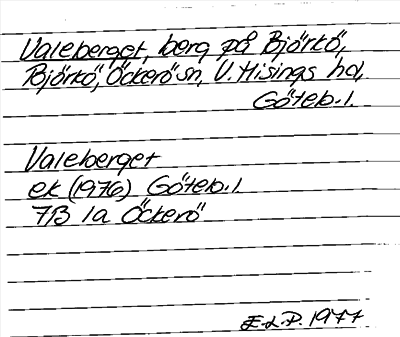 Valeberget, berg på Björkö,
Björkö, Öckerö sn, V. Hisings hd,
Göteb. l.
Valeberget
ek (1976) Göteb. l
7B 1a Öckerö
E.L.P. 1977